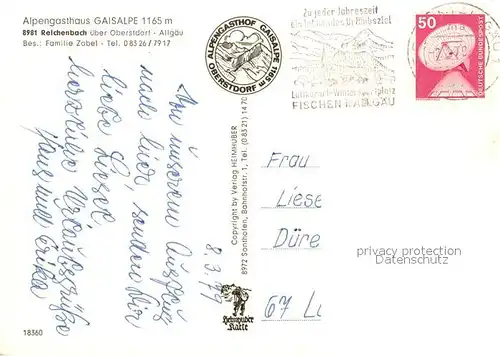 Alpengasthaus GAISALPE 1165 m
8981 Reichenbach über Oberstdorf - Allgäu
Bes.: Familie Zobel - Tel. 0 83 26 / 79 17
ALPENGASTHOF GAISALPE 1165 m
OBERSTDORF
Zu jeder Jahreszeit
ein lohnendes Urlaubsziel
Luftkurort-Wintersportplatz
FISCHEN-ALLGÄU
50
DEUTSCHE BUNDESPOST
Von unserem Ausflug
nach hier, senden Dir
liebe Liesel
herzliche Urlaubsgrüße
Hans und Erika
8.3.79
Copyright by Verlag HEIMHUBER
8972 Sonthofen, Bahnhofstr. 1, Tel. (0 83 21) 14 70
Heimhuber
Karte
Frau
Liese
Düre
67 Lu
privacy protection
Datenschutz
18360